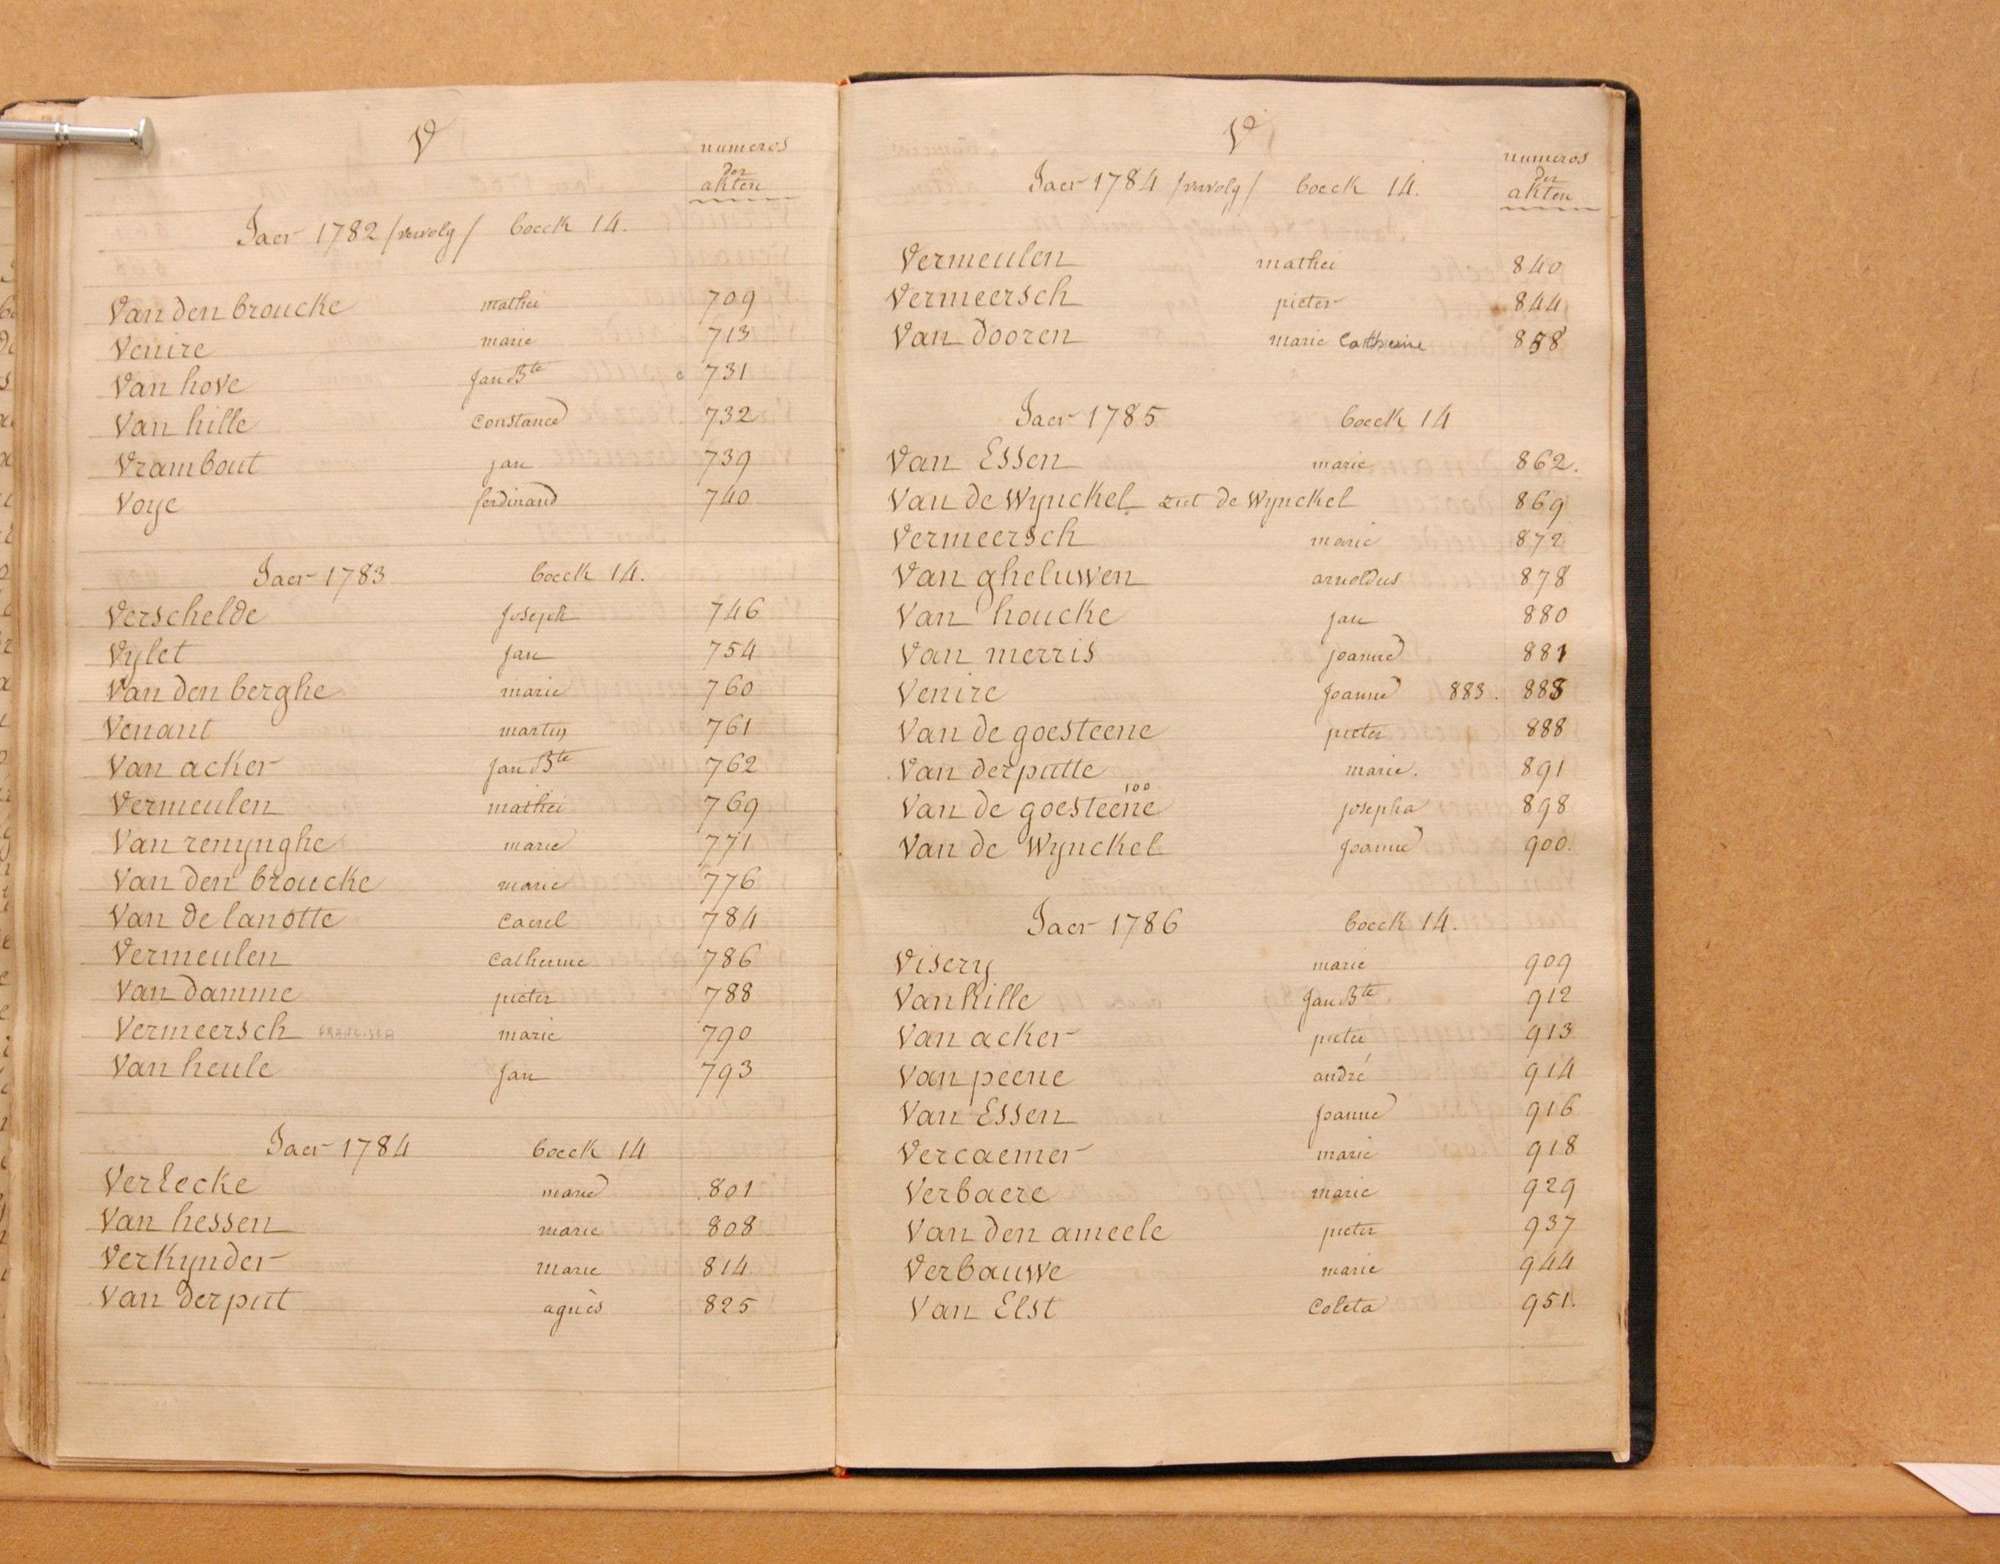 V
numeros
der
akten
Jaer 1782 /vervolg/ boeck 14.
Van den broucke mathei 709
Venire marie 713
Van hove Jan Bte 731
Van hille Constance 732
Vrambout jan 739
Voye ferdinand 740
Jaer 1783 boeck 14.
Verschelde Joseph 746
Vylet Jan 754
Van den berghe marie 760
Venant martin 761
Van acker Jan Bte 762
Vermeulen mathei 769
Van renynghe marie 771
Van den broucke marie 776
Van de lanotte Carel 784
Vermeulen Catherine 786
Van damme pieter 788
Vermeersch FRANCISCA marie 790
Van heule Jan 793
Jaer 1784 boeck 14
Verlecke marie 801
Van hessen marie 808
Verkynder marie 814
Van der put agnès 825
V
numeros
der
akten
Jaer 1784 /vervolg/ boeck 14.
Vermeulen mathei 840
Vermeersch pieter 844
Van dooren marie Catherine 858
Jaer 1785 boeck 14
Van Essen marie 862.
Van de Wynckel ziet de Wynckel 869
Vermeersch marie 872
Van gheluwen arnoldus 878
Van houcke jan 880
Van merris joanne 881
Venire Joanne 883. 883
Van de goesteene pieter 888
Van der putte marie. 891
Van de goesteene josepha 898
Van de Wynckel Joanne 900.
Jaer 1786 boeck 14.
Visery marie 909
Van hille Jan Bte 912
Van acker pieter 913
Van peene andré 914
Van Essen Joanne 916
Vercaemer marie 918
Verbaere marie 929
Van den ameele pieter 937
Verbauwe marie 944
Van Elst Coleta 951.